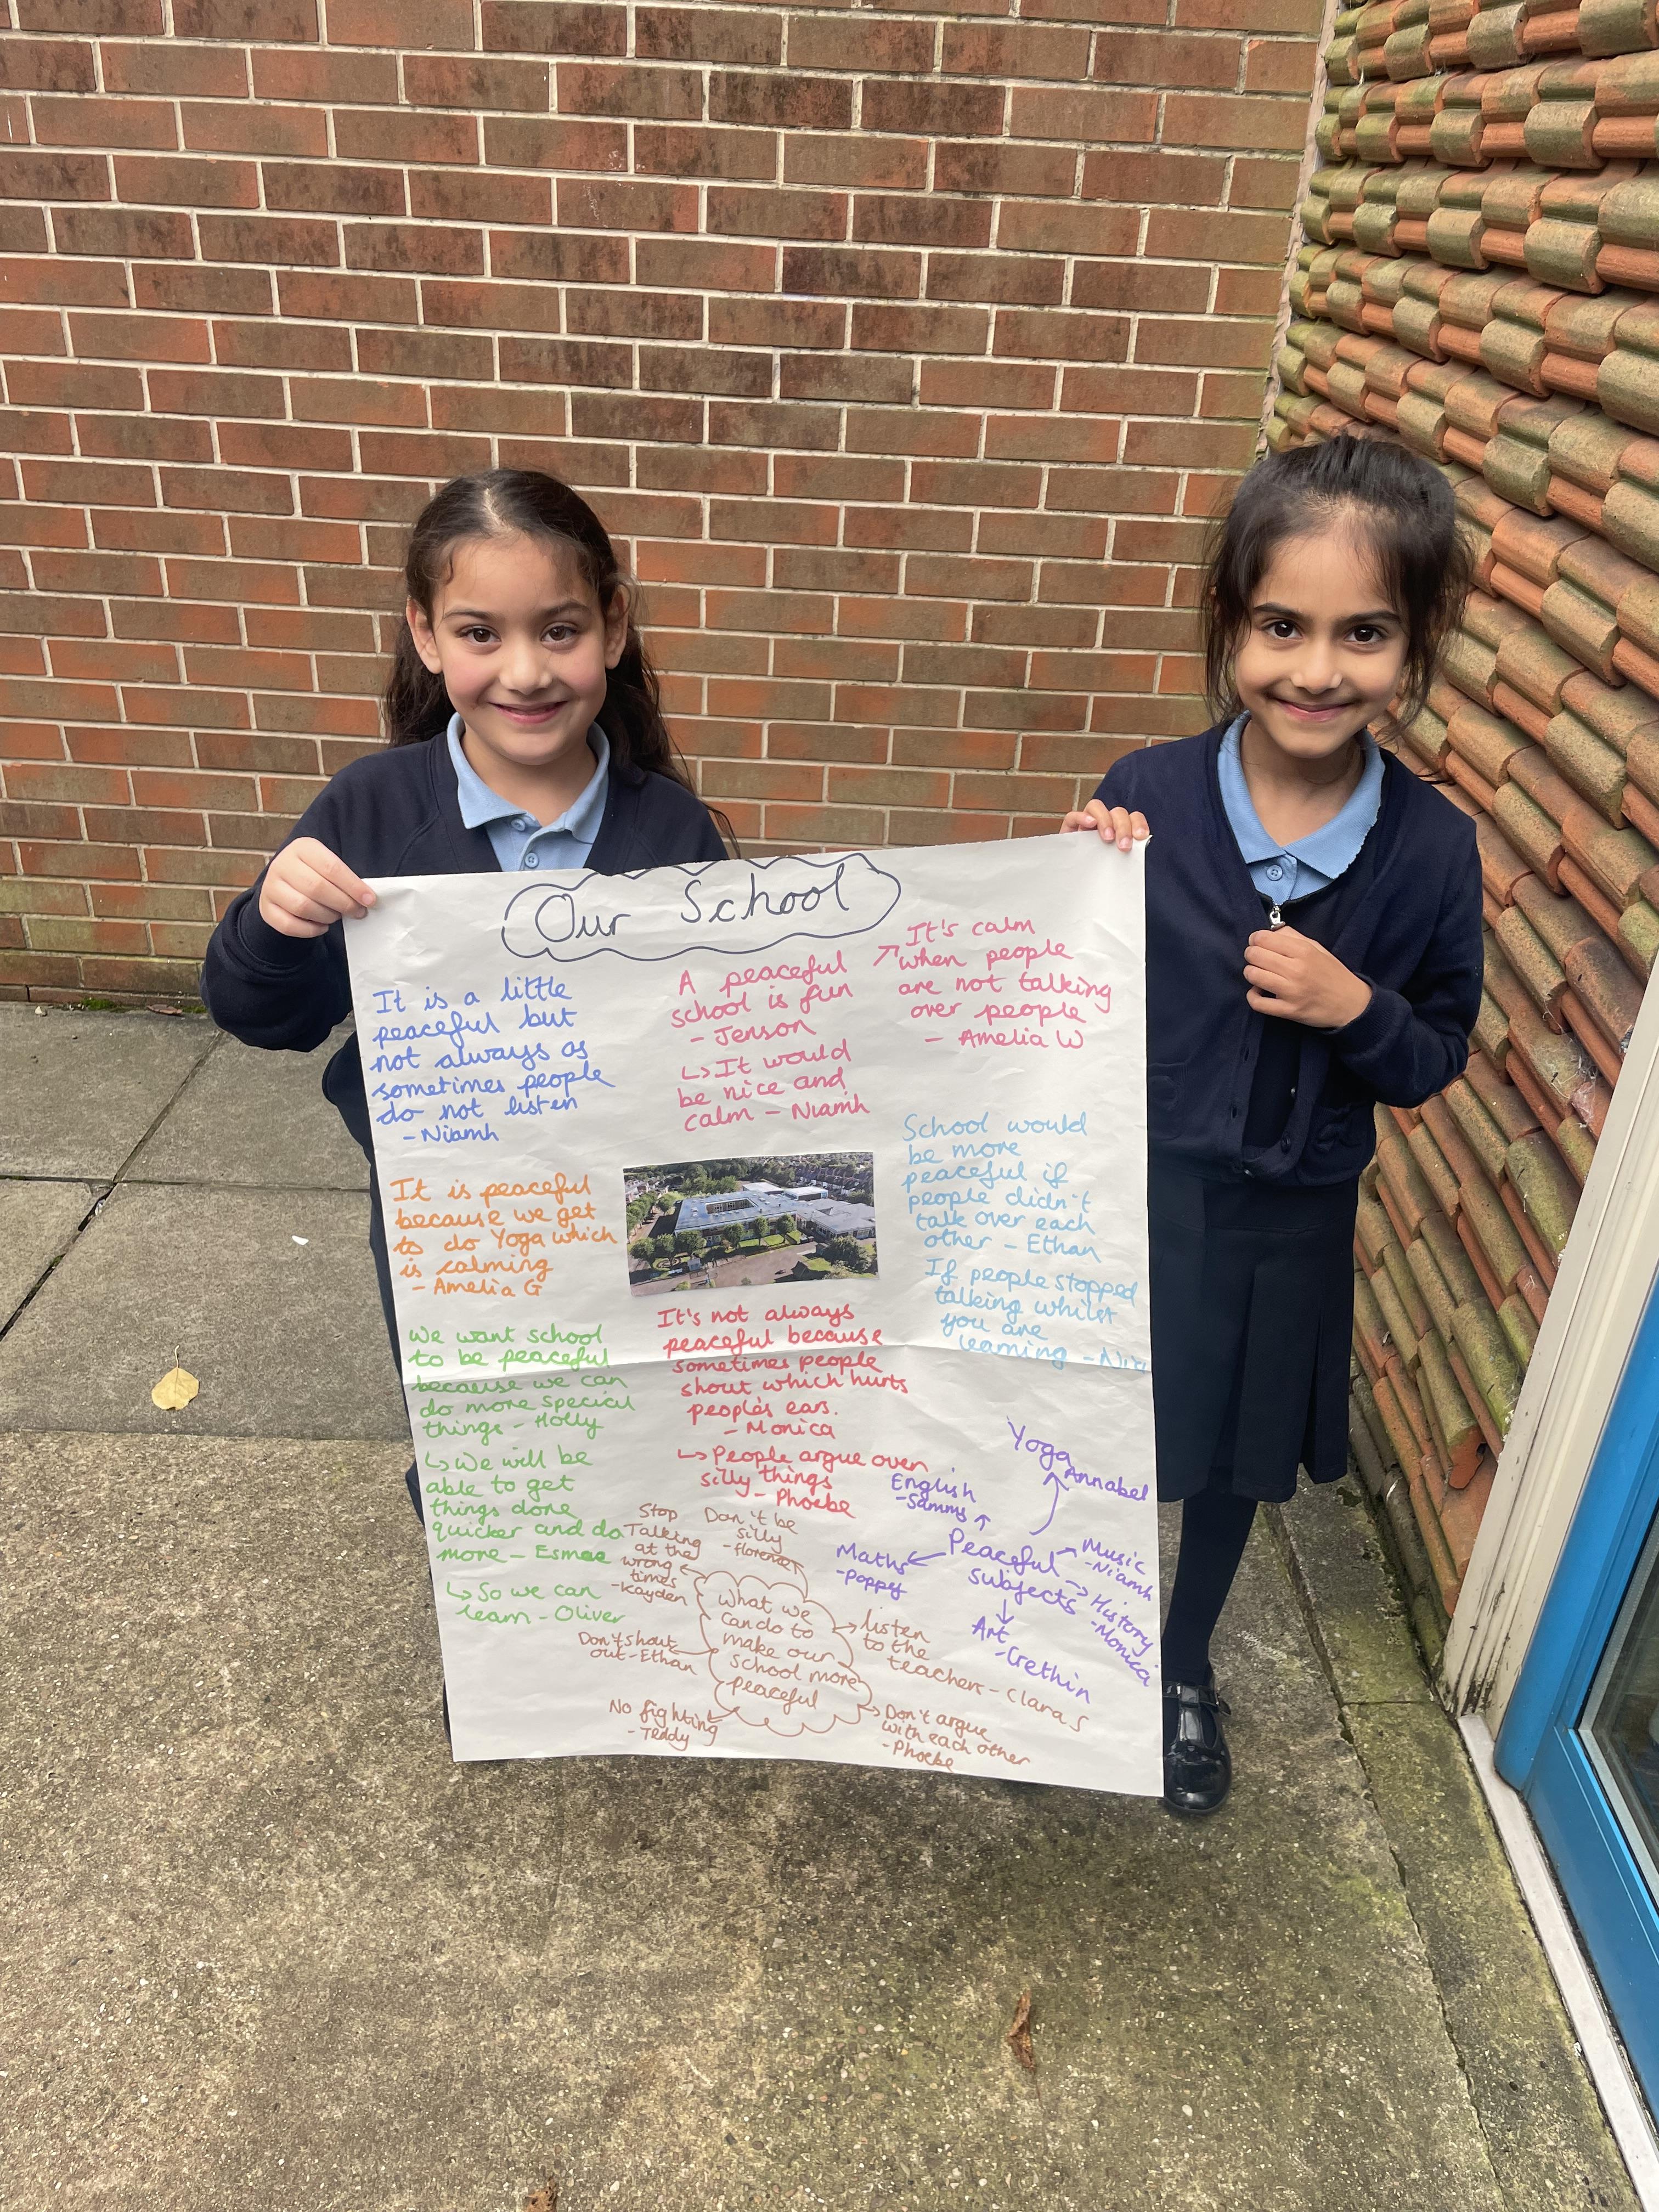 Our School
It is a little
peaceful but
not always as
sometimes people
do not listen
- Niamh
A peaceful
school is fun
- Jenson
↳ It would
be nice and
calm - Niamh
↗ It's calm
when people
are not talking
over people
- Amelia W
It is peaceful
because we get
to do Yoga which
is calming
- Amelia G
School would
be more
peaceful if
people didn't
talk over each
other - Ethan
If people stopped
talking whilst
you are
learning -
We want school
to be peaceful
because we can
do more special
things - Holly
↳ We will be
able to get
things done
quicker and do
more - Esmae
↳ So we can
learn - Oliver
It's not always
peaceful because
sometimes people
shout which hurts
people's ears.
- Monica
↳ People argue over
silly things
- Phoebe
Peaceful
subjects
Yoga
Annabel
English
- Sammy
Maths
- Poppy
Music
- Niamh
History
- Monica
Art
- Crethin
What we
can do to
make our
school more
peaceful
Stop
Talking
at the
wrong
times
- Kayden
Don't be
silly
- florence
listen
to the
teachers - Clara S
Don't shout
out - Ethan
No fighting
- Teddy
Don't argue
with each other
- Phoebe